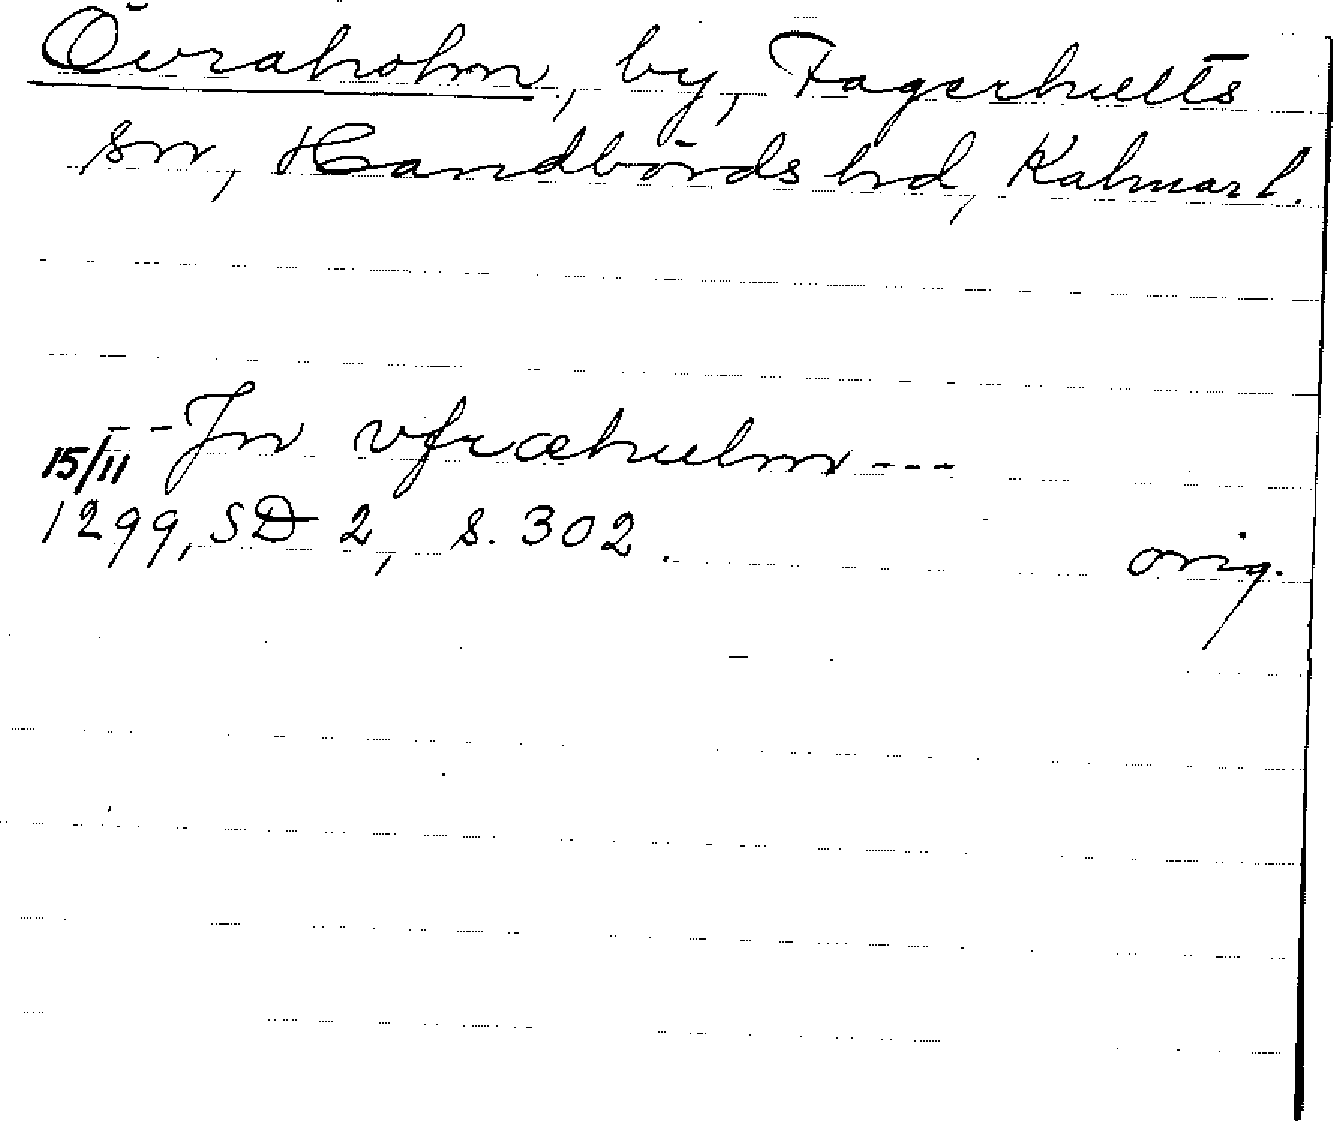 Övraholm, by, Fagerhults
sn, Handbörds hd, Kalmar l.
--- Jn vfræhulm ---
15/11
1299, SD 2, s. 302.
orig.